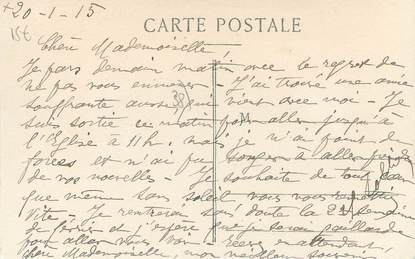 +20-1-15
CARTE POSTALE
15€
Chère Mademoiselle!
Je pars demain matin avec le regret de
ne pas vous J'ai trouvé une amie
souffrante aussi qui vient avec moi - Je
suis sortie ce matin pour aller jusqu'à
l'Eglise à 11h, mais je n'ai point de
forces et n'ai pu songer à aller
de vos nouvelles - Je souhaite de tout
que même sans soleil, vous vous
vite - Je rentrerai sans doute la 2e semaine
de février et j'espère que je serai
pour aller vous voir en attendant,
chère Mademoiselle, mon meilleur souvenir